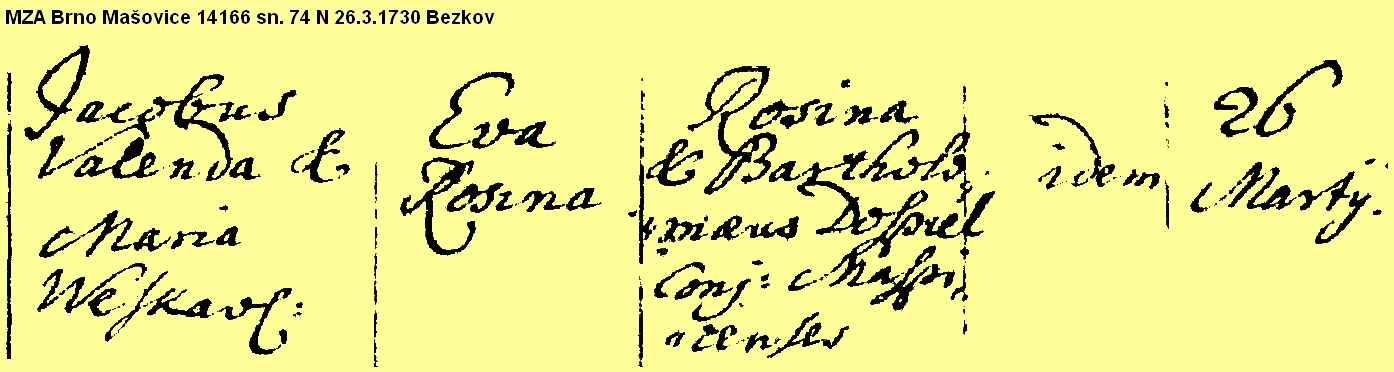 MZA Brno Mašovice 14166 sn. 74 N 26.3.1730 Bezkov
Jacobus
Valenda &
Maria
Weskavc:
Eva
Rosina
Rosina
& Bartholo
mæus Dospiel
Conj: Masso
vicenses
idem
26
Martÿ.